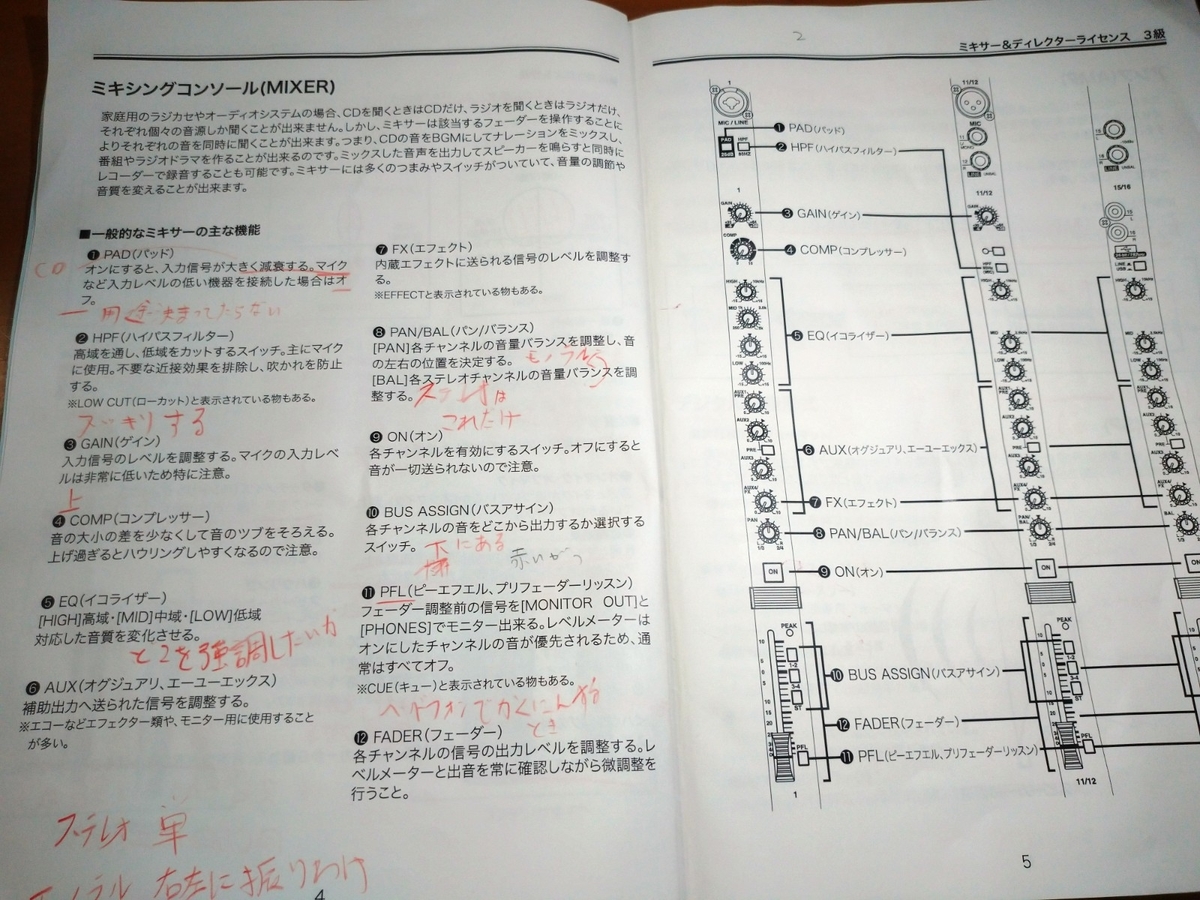 ミキシングコンソール(MIXER)
家庭用のラジカセやオーディオシステムの場合、CDを聞くときはCDだけ、ラジオを聞くときはラジオだけ、
それぞれ個々の音源しか聞くことが出来ません。しかし、ミキサーは該当するフェーダーを操作することに
よりそれぞれの音を同時に聞くことが出来ます。つまり、CDの音をBGMにしてナレーションをミックスし、
番組やラジオドラマを作ることが出来るのです。ミックスした音声を出力してスピーカーを鳴らすと同時に
レコーダーで録音することも可能です。ミキサーには多くのつまみやスイッチがついていて、音量の調節や
音質を変えることが出来ます。
■一般的なミキサーの主な機能
❶ PAD(パッド)
CD
オンにすると、入力信号が大きく減衰する。マイク
など入力レベルの低い機器を接続した場合はオ
フ。
用途決まってたらない
❷ HPF(ハイパスフィルター)
高域を通し、低域をカットするスイッチ。主にマイク
に使用。不要な近接効果を排除し、吹かれを防止
する。
※LOW CUT(ローカット)と表示されている物もある。
スッキリする
❸ GAIN(ゲイン)
入力信号のレベルを調整する。マイクの入力レベ
ルは非常に低いため特に注意。
上
❹ COMP(コンプレッサー)
音の大小の差を少なくして音のツブをそろえる。
上げ過ぎるとハウリングしやすくなるので注意。
❺ EQ(イコライザー)
[HIGH]高域・[MID]中域・[LOW]低域
対応した音質を変化させる。
どこを強調したいか
❻ AUX(オグジュアリ、エーユーエックス)
補助出力へ送られた信号を調整する。
※エコーなどエフェクター類や、モニター用に使用すること
が多い。
ステレオ 単
モノラル 右左に振りわけ
4
❼ FX(エフェクト)
内蔵エフェクトに送られる信号のレベルを調整す
る。
※EFFECTと表示されている物もある。
❽ PAN/BAL(パン/バランス)
[PAN]各チャンネルの音量バランスを調整し、音
の左右の位置を決定する。
モノラル
[BAL]各ステレオチャンネルの音量バランスを調
整する。
ステレオは
これだけ
❾ ON(オン)
各チャンネルを有効にするスイッチ。オフにすると
音が一切送られないので注意。
❿ BUS ASSIGN(バスアサイン)
各チャンネルの音をどこから出力するか選択する
スイッチ。
下にある
⓫ PFL(ピーエフエル、プリフェーダーリッスン)
フェーダー調整前の信号を[MONITOR OUT]と
[PHONES]でモニター出来る。レベルメーターは
オンにしたチャンネルの音が優先されるため、通
常はすべてオフ。
※CUE(キュー)と表示されている物もある。
ヘッドフォンでかくにんする
とき
⓬ FADER(フェーダー)
各チャンネルの信号の出力レベルを調整する。レ
ベルメーターと出音を常に確認しながら微調整を
行うこと。
2
ミキサー&ディレクターライセンス 3級
1
11/12
MIC / LINE
MIC
❶ PAD(パッド)
❷ HPF(ハイパスフィルター)
PAD
HPF
1
11/12
15/16
GAIN
❸ GAIN(ゲイン)
GAIN
COMP
❹ COMP(コンプレッサー)
HPF
HIGH
MID
LOW
❺ EQ(イコライザー)
MID
LOW
AUX1
AUX2
PRE
AUX3
❻ AUX(オグジュアリ、エーユーエックス)
AUX4/FX
❼ FX(エフェクト)
PAN
❽ PAN/BAL(パン/バランス)
PAN/BAL
BAL
ON
❾ ON(オン)
ON
PEAK
1-2
3-4
ST
❿ BUS ASSIGN(バスアサイン)
PEAK
⓬ FADER(フェーダー)
PFL
⓫ PFL(ピーエフエル、プリフェーダーリッスン)
PFL
1
11/12
5